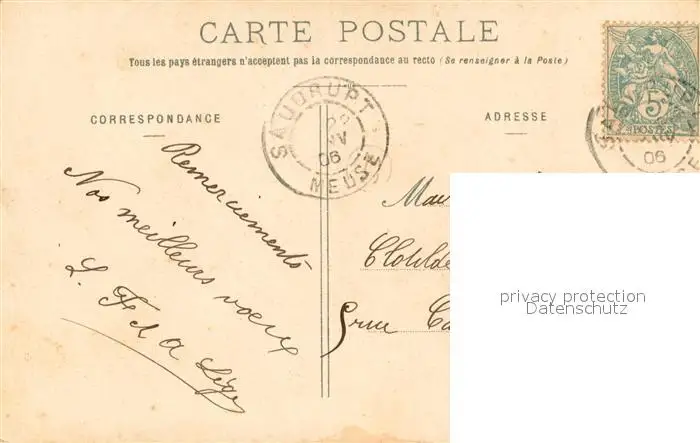 CARTE POSTALE
Tous les pays étrangers n'acceptent pas la correspondance au recto (Se renseigner à la Poste)
CORRESPONDANCE
ADRESSE
SAUDRUPT
06
MEUSE
5
POSTES
06
Remerciements
Nos meilleurs voeux
L. F et A
Clotilde
5 rue
privacy protection
Datenschutz